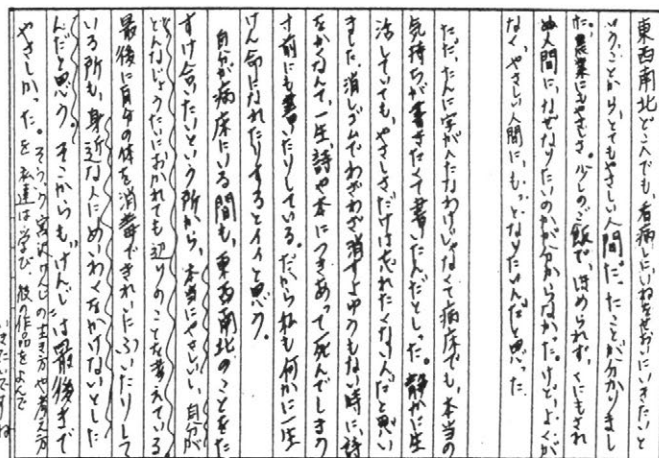 東西南北どこへでも、看病しにいねをせおいにいきたいと
いうことから、とてもやさしい人間だ。たことが分かりまし
た。農業にもやさしさ。少しのご飯で、ほめられず、くにもされ
ぬ人間に、なぜなりたいのかが分からなかったけど、よくが
なく、やさしい人間に、もっとなりたいんだと思った。
ただ、たんに字がへたなわけじゃなくて病床でも、本当の
気持ちが書きたくて書いたんだとしった。静かに生
活していても、やさしさだけは忘れたくないんだと思い
ました。消しゴムでわざわざ消すよゆうもない時に、詩
をかなんて、一生、詩や本につきあって死んでしまう
寸前にも書いたりしている。だから私も何かに一生
けん命になれたりするとイイと思う。
自分が病床にいる間も、東西南北のことをた
すけ合いたいという所から、本当にやさしいし、自分が
どんなじょうたいにおかれても辺りのことを考えている。
最後に自分の体を消毒できれいにふいたりして
いる所も、身近な人にめいわくをかけないとした
んだと思う。そこからも"けんじ"は最後まで
やさしかった。そういう宮沢けんじの生き方や考え方
を私達は学び、彼の作品をよんで
いきたいですね